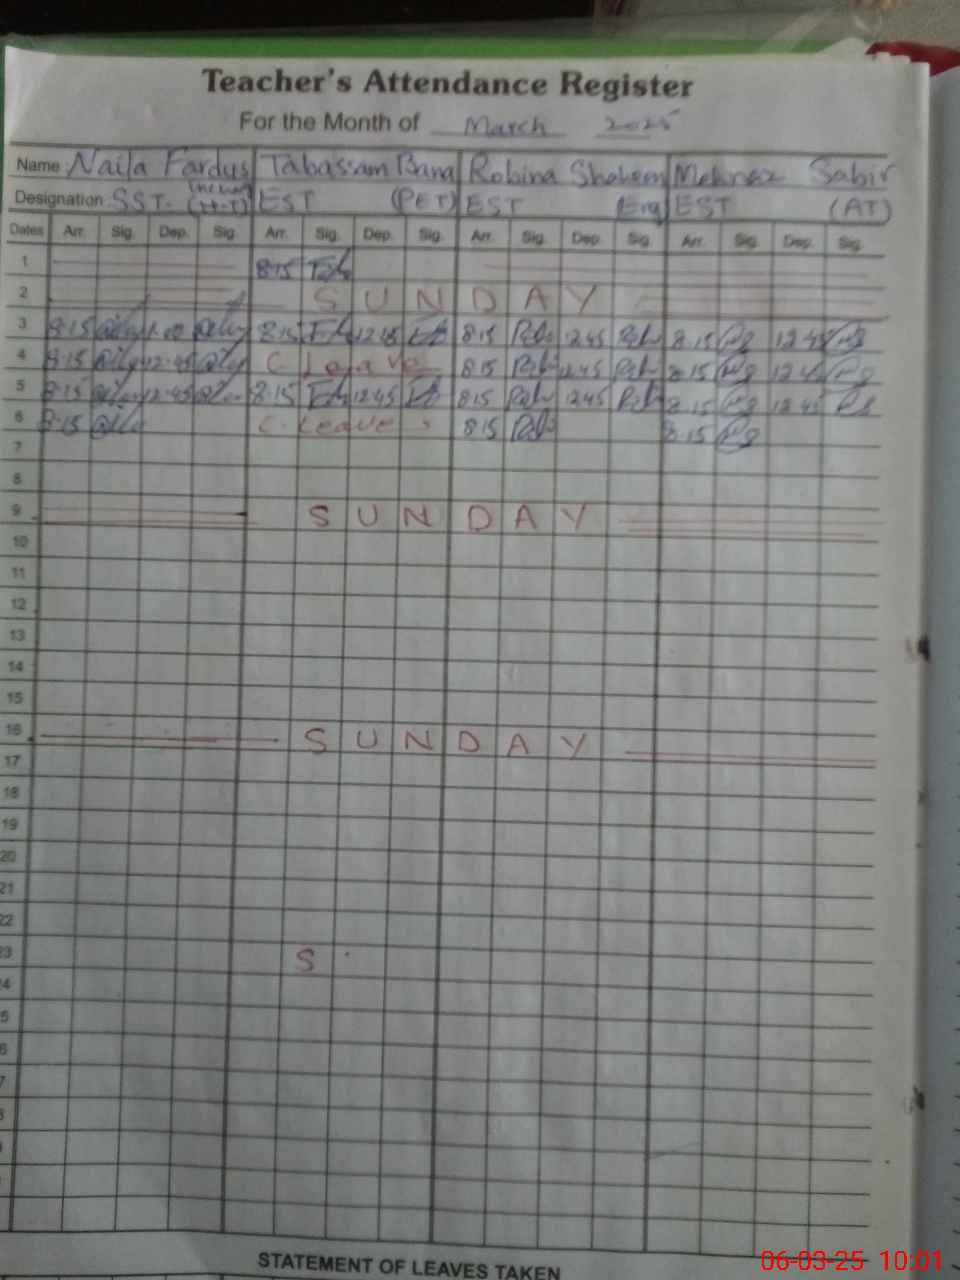 Teacher's Attendance Register
For the Month of March 2025
Name Naila Fardus Tabassam Bana Robina Shaheen Mehnaz Sabir
Designation SST. (H.T) EST (PET) EST Eng EST (AT)
Dates Arr. Sig. Dep. Sig. Arr. Sig. Dep. Sig. Arr. Sig. Dep. Sig. Arr. Sig. Dep. Sig.
1 8:15
2 S U N D A Y
3 8:15 1:00 8:15 12:45 8:15 12:45 8:15 12:45
4 8:15 12:45 C. Leave 8:15 12:45 8:15 12:45
5 8:15 12:45 8:15 12:45 8:15 12:45 8:15 12:45
6 8:15 C. Leave 8:15 8:15
7
8
9 S U N D A Y
10
11
12
13
14
15
16 S U N D A Y
17
18
19
20
21
22
3 S
4
5
6
7
STATEMENT OF LEAVES TAKEN
06-03-25 10:01